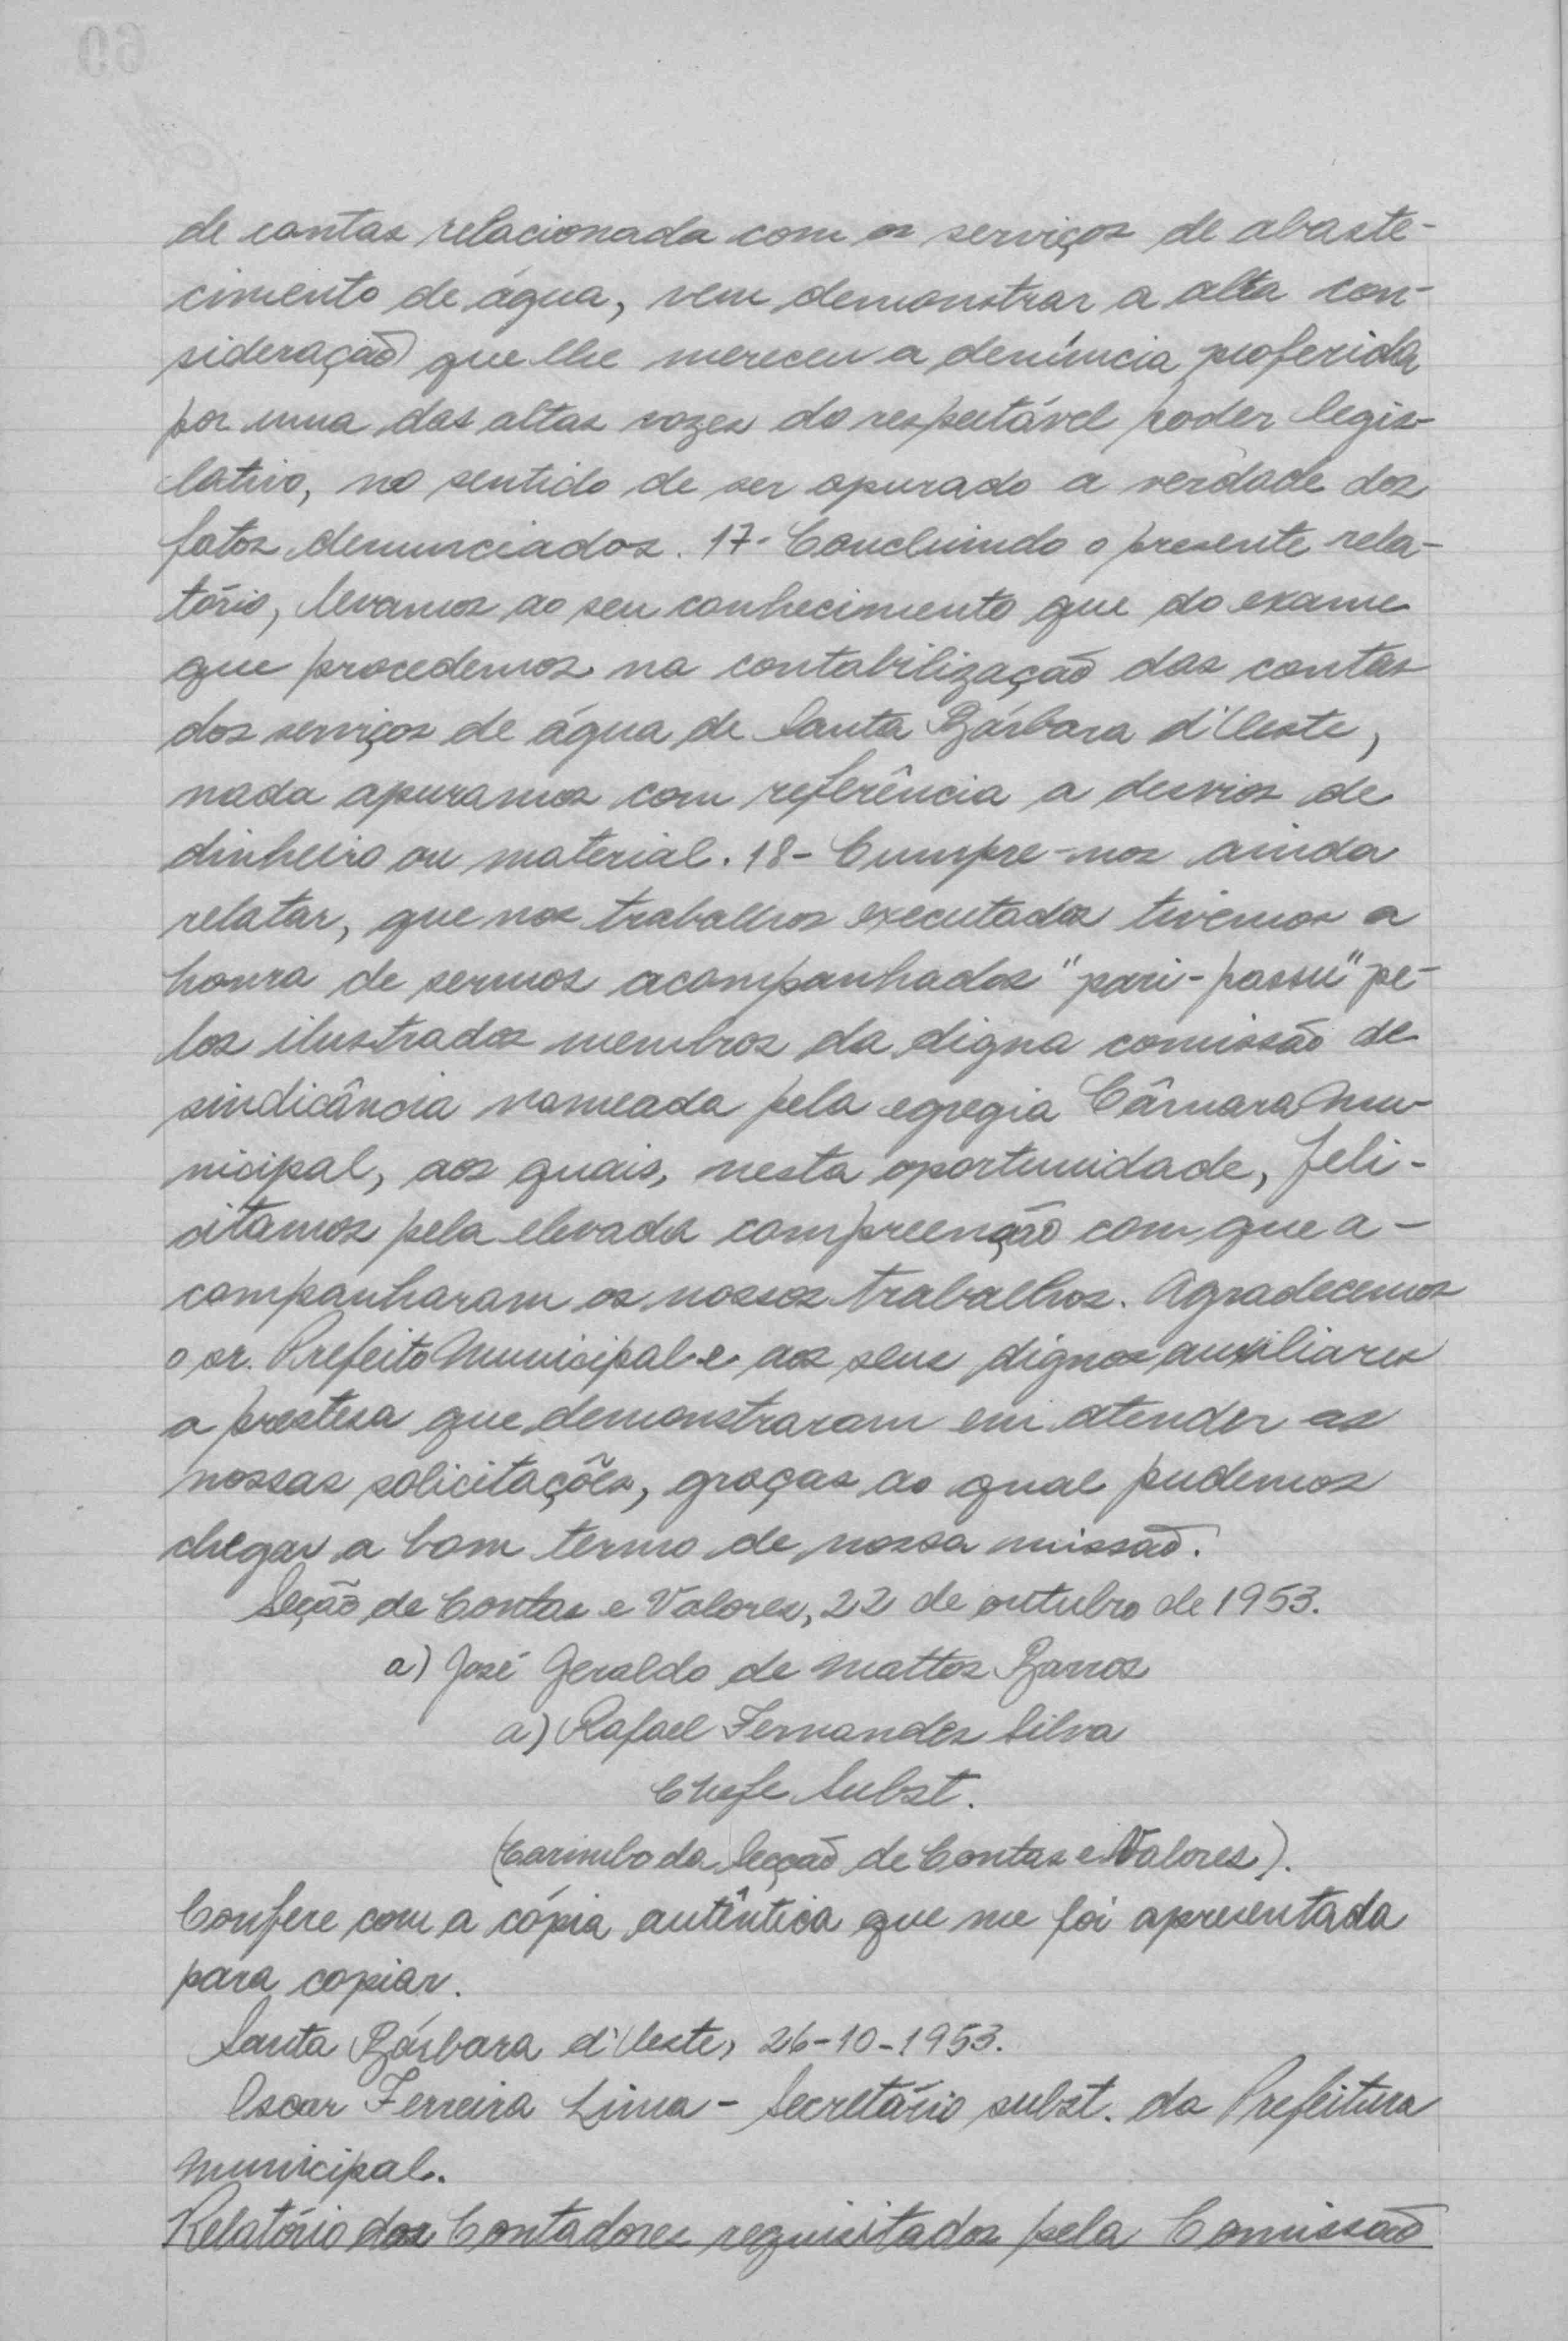 de contas relacionada com os serviços de abaste-
cimento de água, vem demonstrar a alta con-
sideração que lhe mereceu a denúncia proferida
por uma das altas vozes do respeitável poder legis-
lativo, no sentido de ser apurado a verdade dos
fatos denunciados. 17- Concluindo o presente rela-
tório, levamos ao seu conhecimento que do exame
que procedemos na contabilização das contas
dos serviços de água de Santa Bárbara d'Oeste,
nada apuramos com referência a desvios de
dinheiro ou material. 18- Cumpre-nos ainda
relatar, que nos trabalhos executados tivemos a
honra de sermos acompanhados "pari-passu" pe-
los ilustrados membros da digna comissão de
sindicância nomeada pela egregia Câmara Mu-
nicipal, aos quais, nesta oportunidade, feli-
citamos pela elevada compreenção com que a-
companharam os nossos trabalhos. Agradecemos
o sr. Prefeito Municipal e aos seus dignos auxiliares
a prestesa que demonstraram em atender as
nossas solicitações, graças ao qual pudemos
chegar a bom termo de nossa missão.
Seção de Contas e Valores, 22 de outubro de 1953.
a) José Geraldo de Mattos Barros
a) Rafael Fernandes Silva
Chefe Subst.
(Carimbo da Secção de Contas e Valores).
Confere com a cópia autêntica que me foi apresentada
para copiar.
Santa Bárbara d'Oeste, 26-10-1953.
Oscar Ferreira Lima - Secretário subst. da Prefeitura
Municipal.
Relatório dos Contadores requisitados pela Comissão